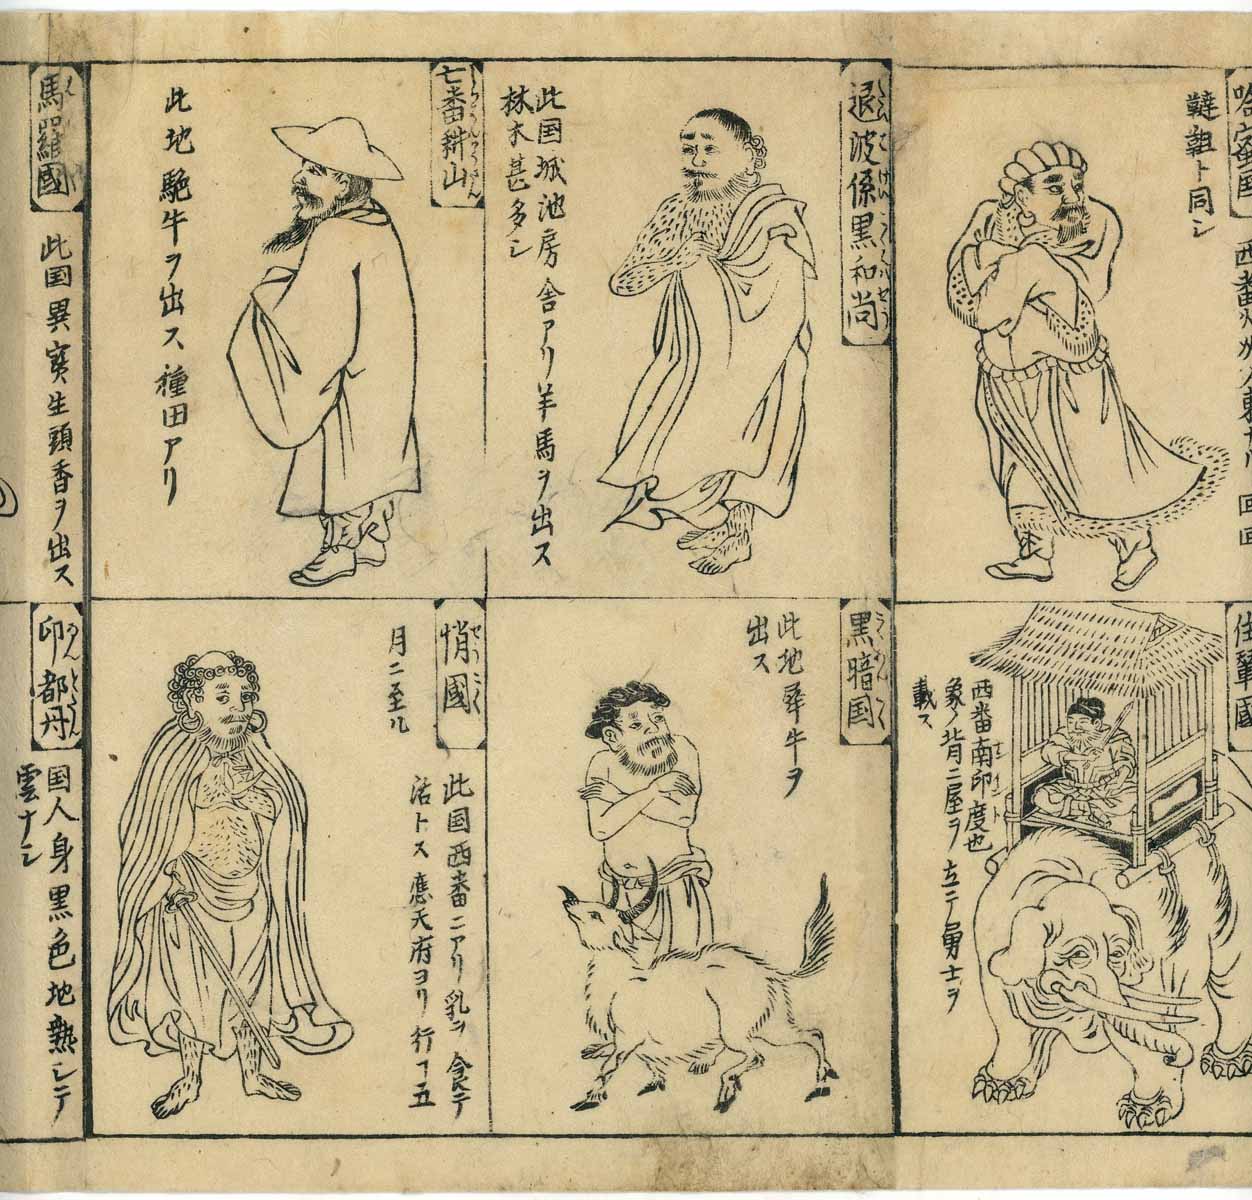 韃靼ト同シ
退波係黒和尚
此国城池房舎アリ羊馬ヲ出ス
林木甚多シ
七番耕山
此地駞牛ヲ出ス種田アリ
馬羅國
此国異宝生頭香ヲ出ス
西番南印度也
象ノ背ニ屋ヲ立テ勇士ヲ
載ス
黒暗国
此地犛牛ヲ
出ス
悄國
此国西番ニアリ乳ヲ食テ
活トス應天府ヨリ行ヿ五
月ニ至ル
印都丹
国人身黒色地熱シテ
雲ナシ